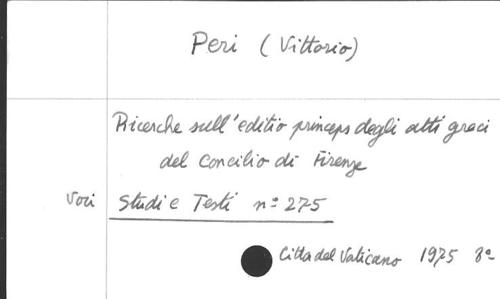 Peri (Vittorio)
Ricerche sull'editio princeps degli atti greci
del Concilio di Firenze
Voci Studi e Testi nº 275
Città del Vaticano 1975 8º